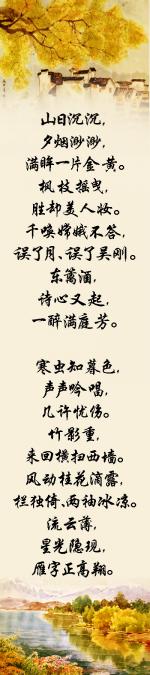 山日沉沉，
夕烟渺渺，
满眸一片金黄。
枫枝摇曳，
胜却美人妆。
千唤嫦娥不答，
误了月、误了吴刚。
东篱酒，
诗心又起，
一醉满庭芳。
寒虫知暮色，
声声吟唱，
几许忧伤。
竹影重，
来回横扫西墙。
风动桂花滴露，
栏独倚、两袖冰凉。
流云薄，
星光隐现，
雁字正高翔。